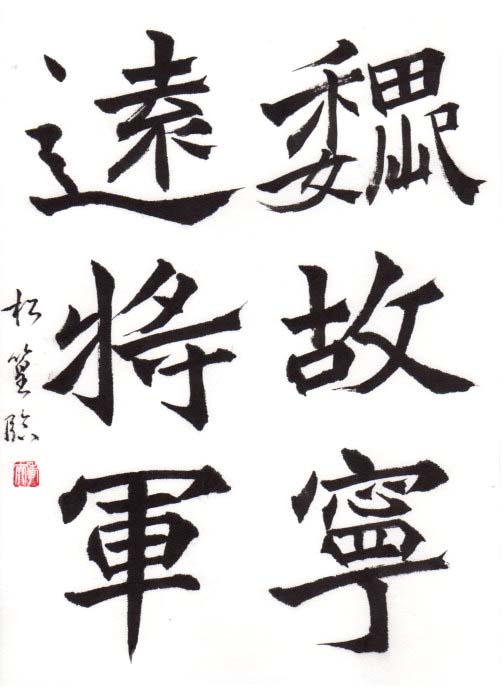 魏故寧
遠將軍
松篁臨